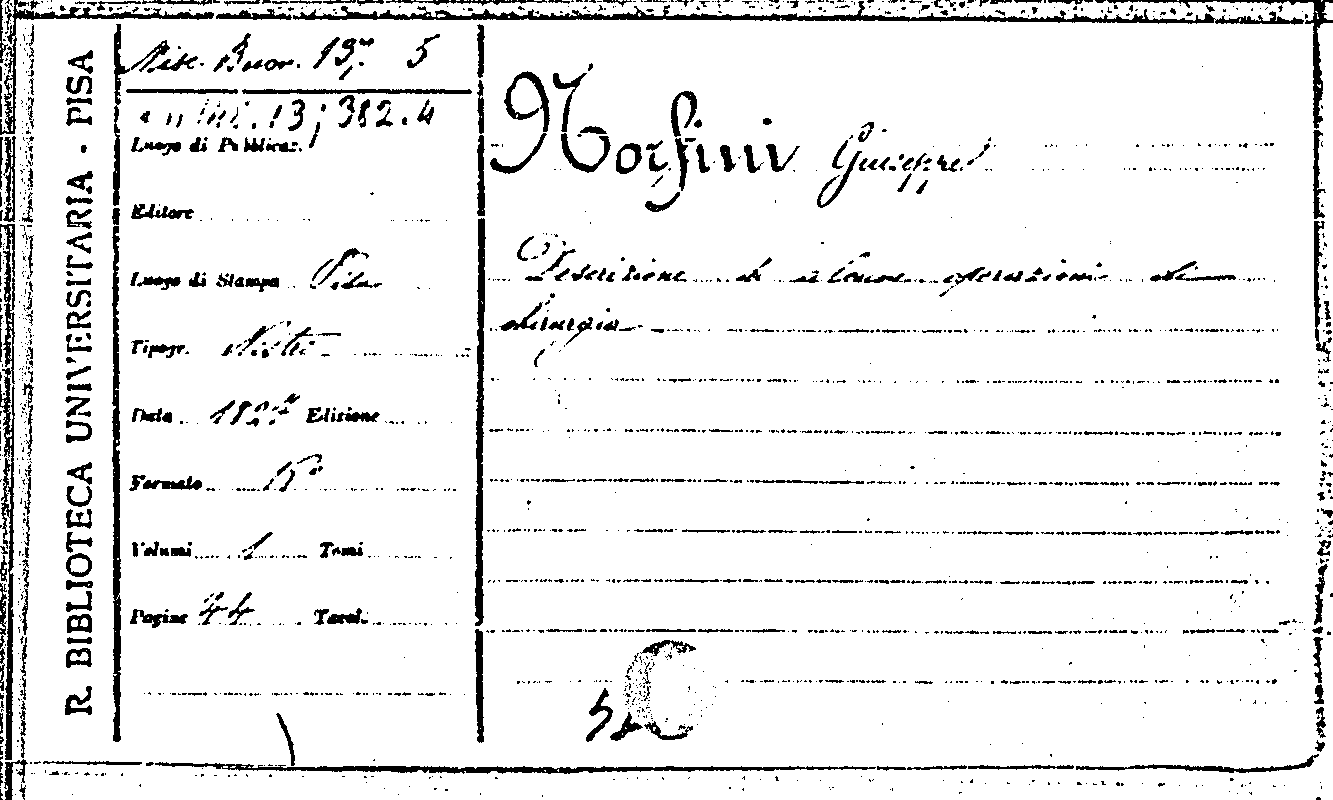 R. BIBLIOTECA UNIVERSITARIA - PISA
Misc. Buon. 13, 5
13; 382.4
Luogo di Pubblicaz.
Editore
Luogo di Stampa Pisa
Tipogr. Nistri
Data 1827 Edizione
Formato
Volumi 1 Tomi
Pagine 44 Tavol.
Norfini Giuseppe
Descrizione di alcune operazioni di
chirurgia